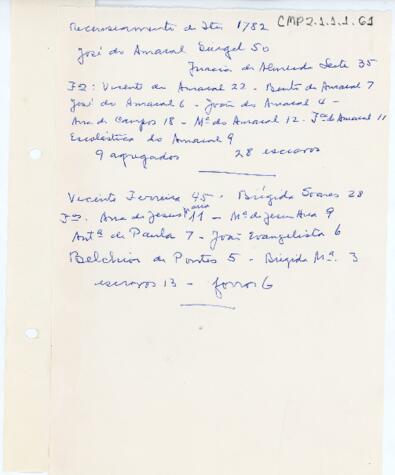 Recenseamento de Itu 1782 CMP2.1.1.1.61
José do Amaral Gurgel 50
Inacia de Almeida Leite 35
Fos: Vicente do Amaral 22 - Bento do Amaral 7
José do Amaral 6 - João do Amaral 4 -
Ana de Campos 18 - Mª do Amaral 12 - Fca do Amaral 11
Escolástica do Amaral 9
9 agregados 28 escravos
Vicente Ferreira 45 - Brígida Soares 28
Fos. Ana de Jesus Maria 11 - Mª de Jesus Ana 9
Antª de Paula 7 - João Evangelista 6
Belchior de Pontes 5 - Brígida Mª. 3
escravos 13 - forros 6